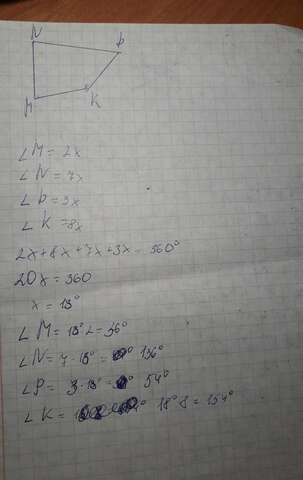 N
P
M
K
∠M = 2x
∠N = 7x
∠P = 3x
∠K = 8x
2x+8x+7x+3x = 360°
20x = 360
x = 18°
∠M = 18°·2 = 36°
∠N = 7·18° = 136°
∠P = 3·18° = 54°
∠K = 18°·8 = 154°